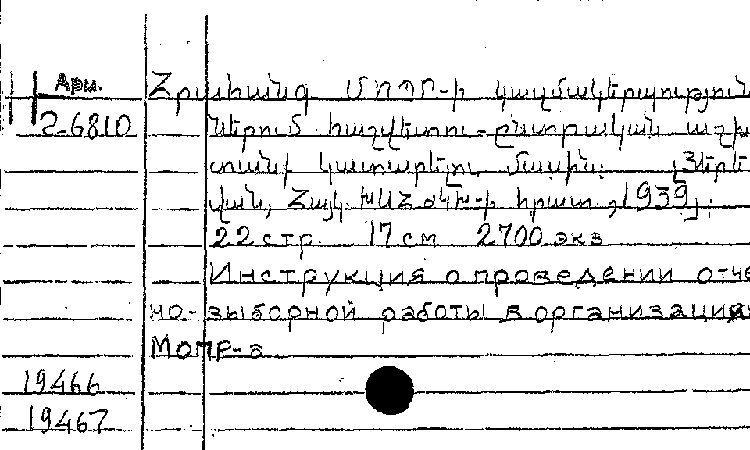 Арм.
2-6810
Հրահանգ ՄՈՊՌ-ի կազմակերպություն
ներում հաշվետու-ընտրական աշխ
տանքի կատարելու մասին: [Յերե
վան, Հայկ. ԽՍՀ ՕԿԽ-ի հրատ., 1939]:
22 стр. 17 см 2700 экз
Инструкция о проведении отче
но-выборной работы в организация
МОПР-а
19466
19467